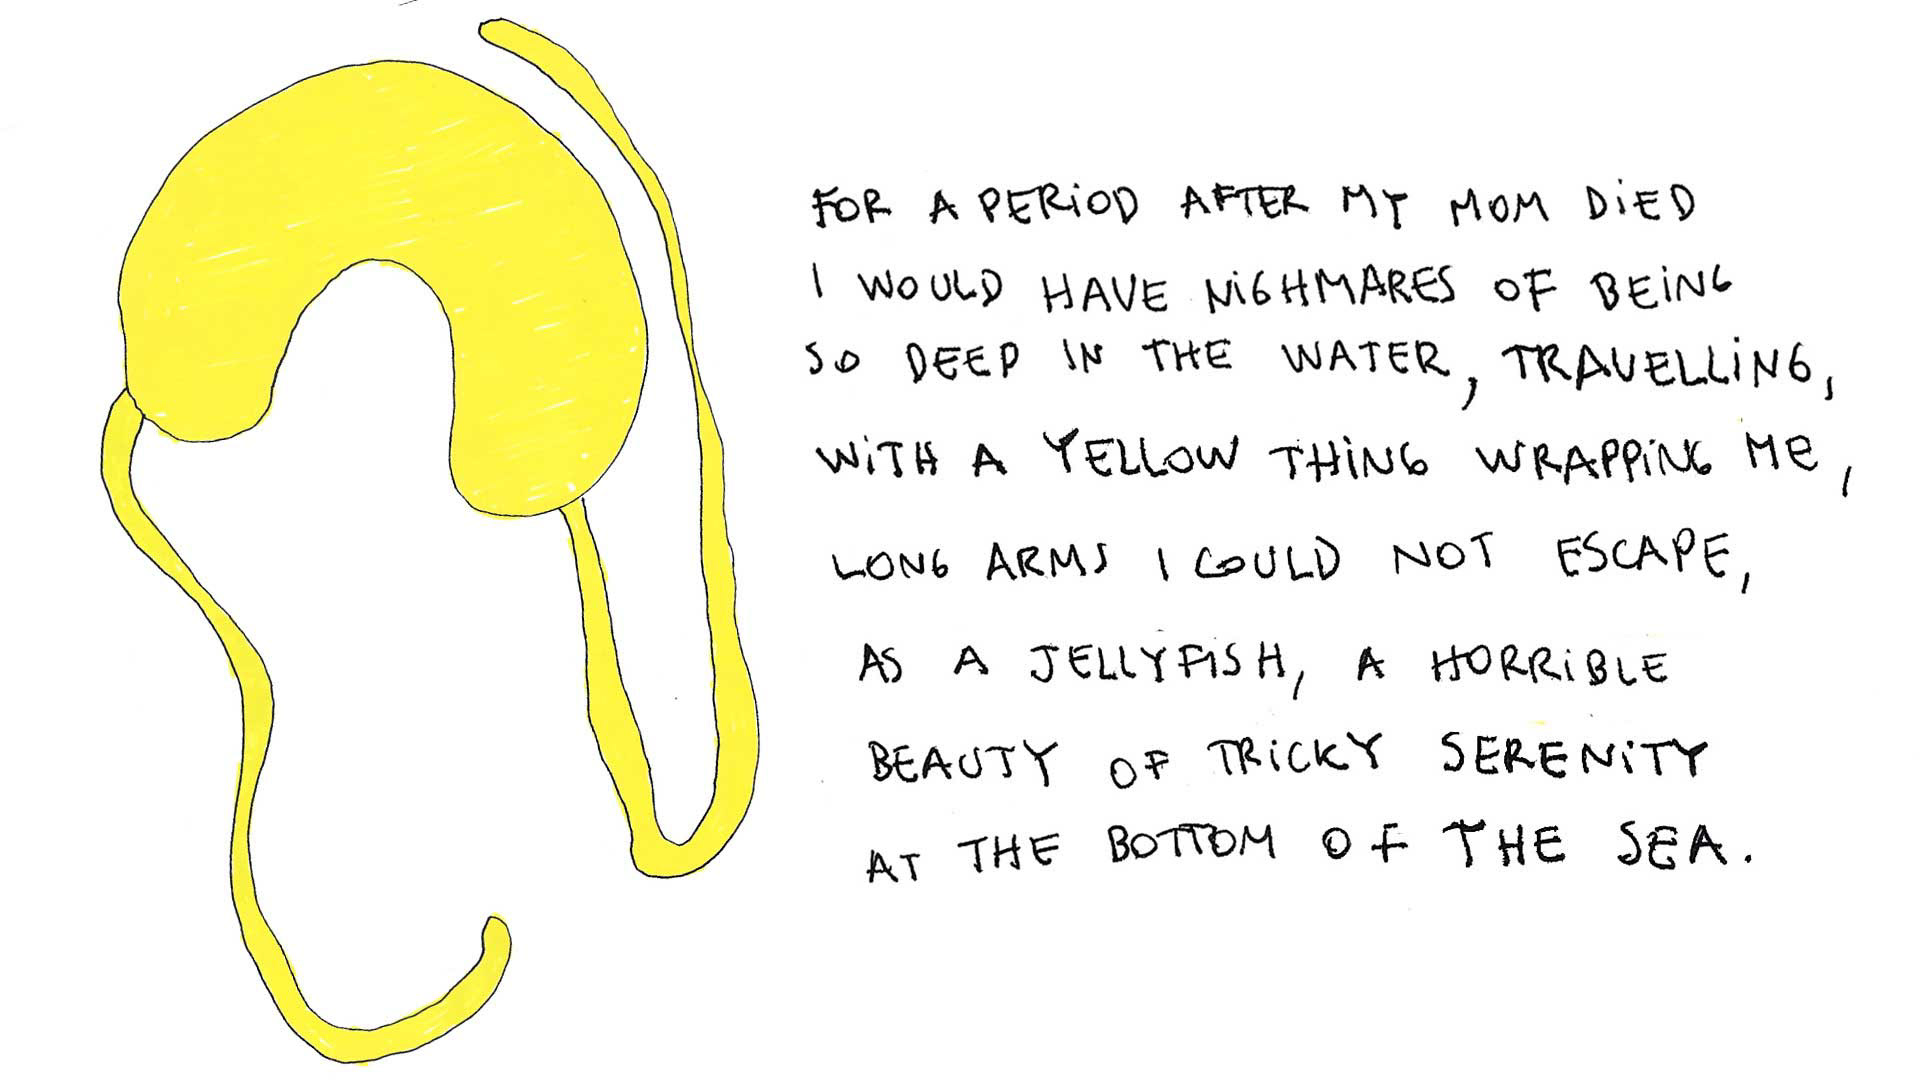 FOR A PERIOD AFTER MY MOM DIED
I WOULD HAVE NIGHMARES OF BEING
SO DEEP IN THE WATER, TRAVELLING,
WITH A YELLOW THING WRAPPING ME,
LONG ARMS I COULD NOT ESCAPE,
AS A JELLYFISH, A HORRIBLE
BEAUTY OF TRICKY SERENITY
AT THE BOTTOM OF THE SEA.